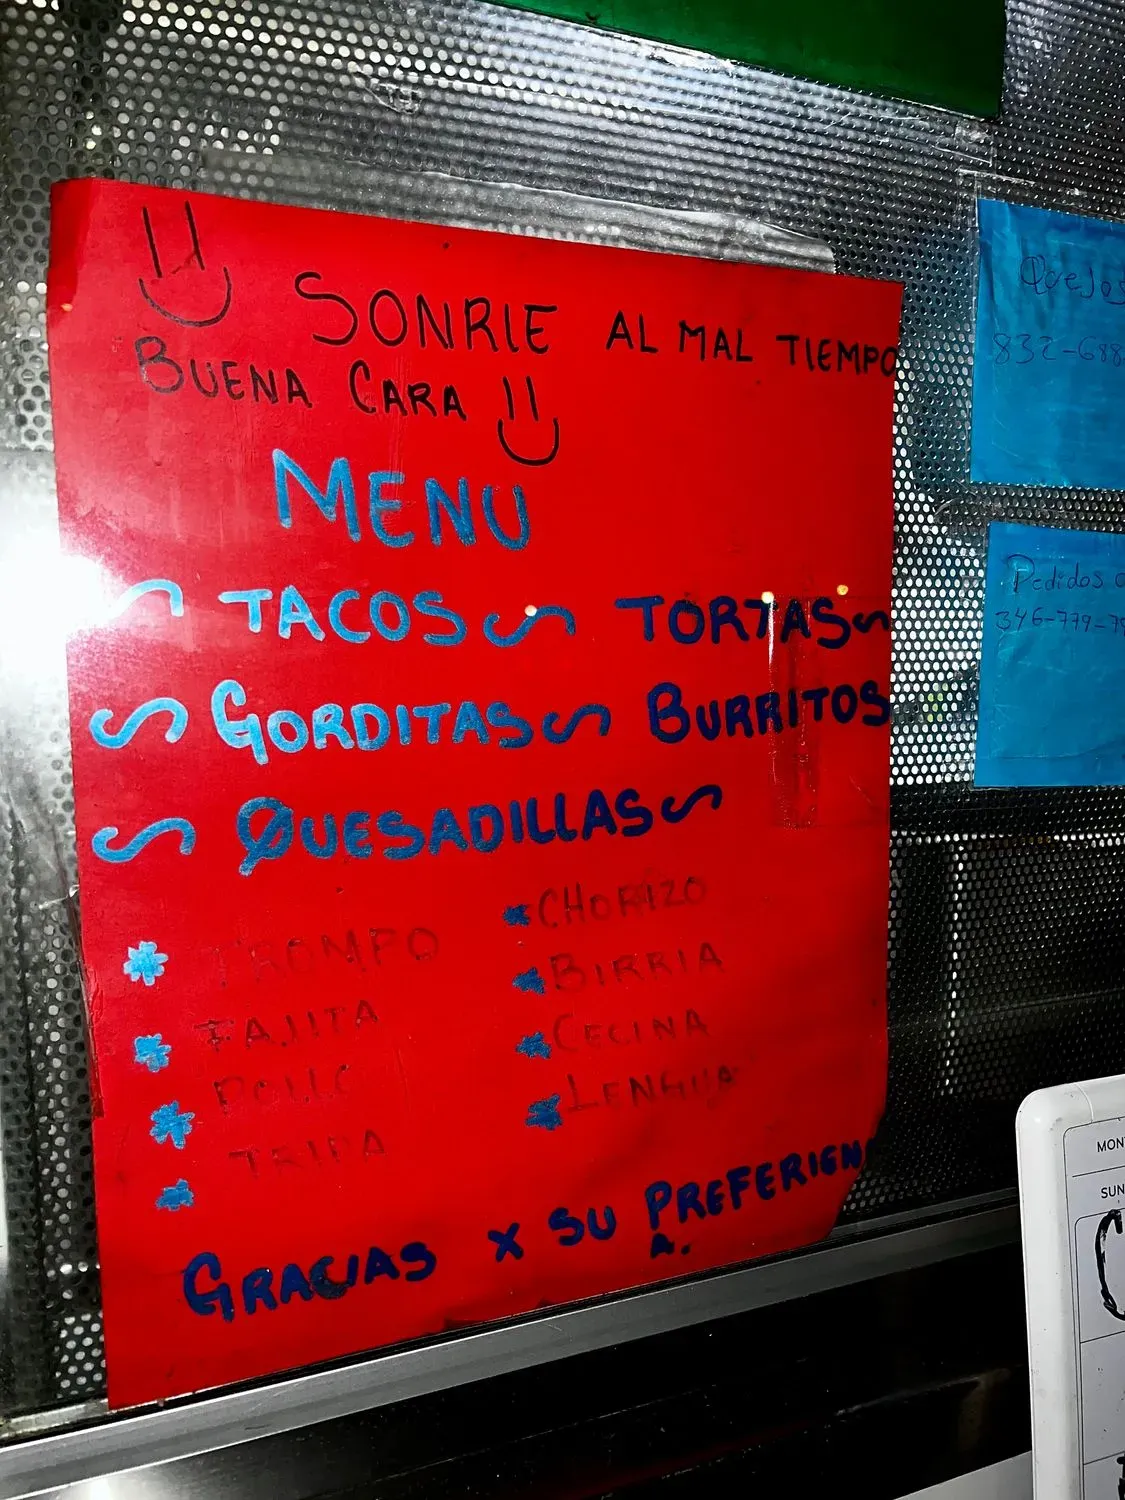 SONRIE AL MAL TIEMPO
BUENA CARA
MENU
TACOS TORTAS
GORDITAS BURRITOS
QUESADILLAS
TROMPO
FAJITA
POLLO
TRIPA
CHORIZO
BIRRIA
CECINA
LENGUA
GRACIAS X SU PREFERIEN
A.
Quejos
832-688
Pedidos
346-779-79
MON
SUN